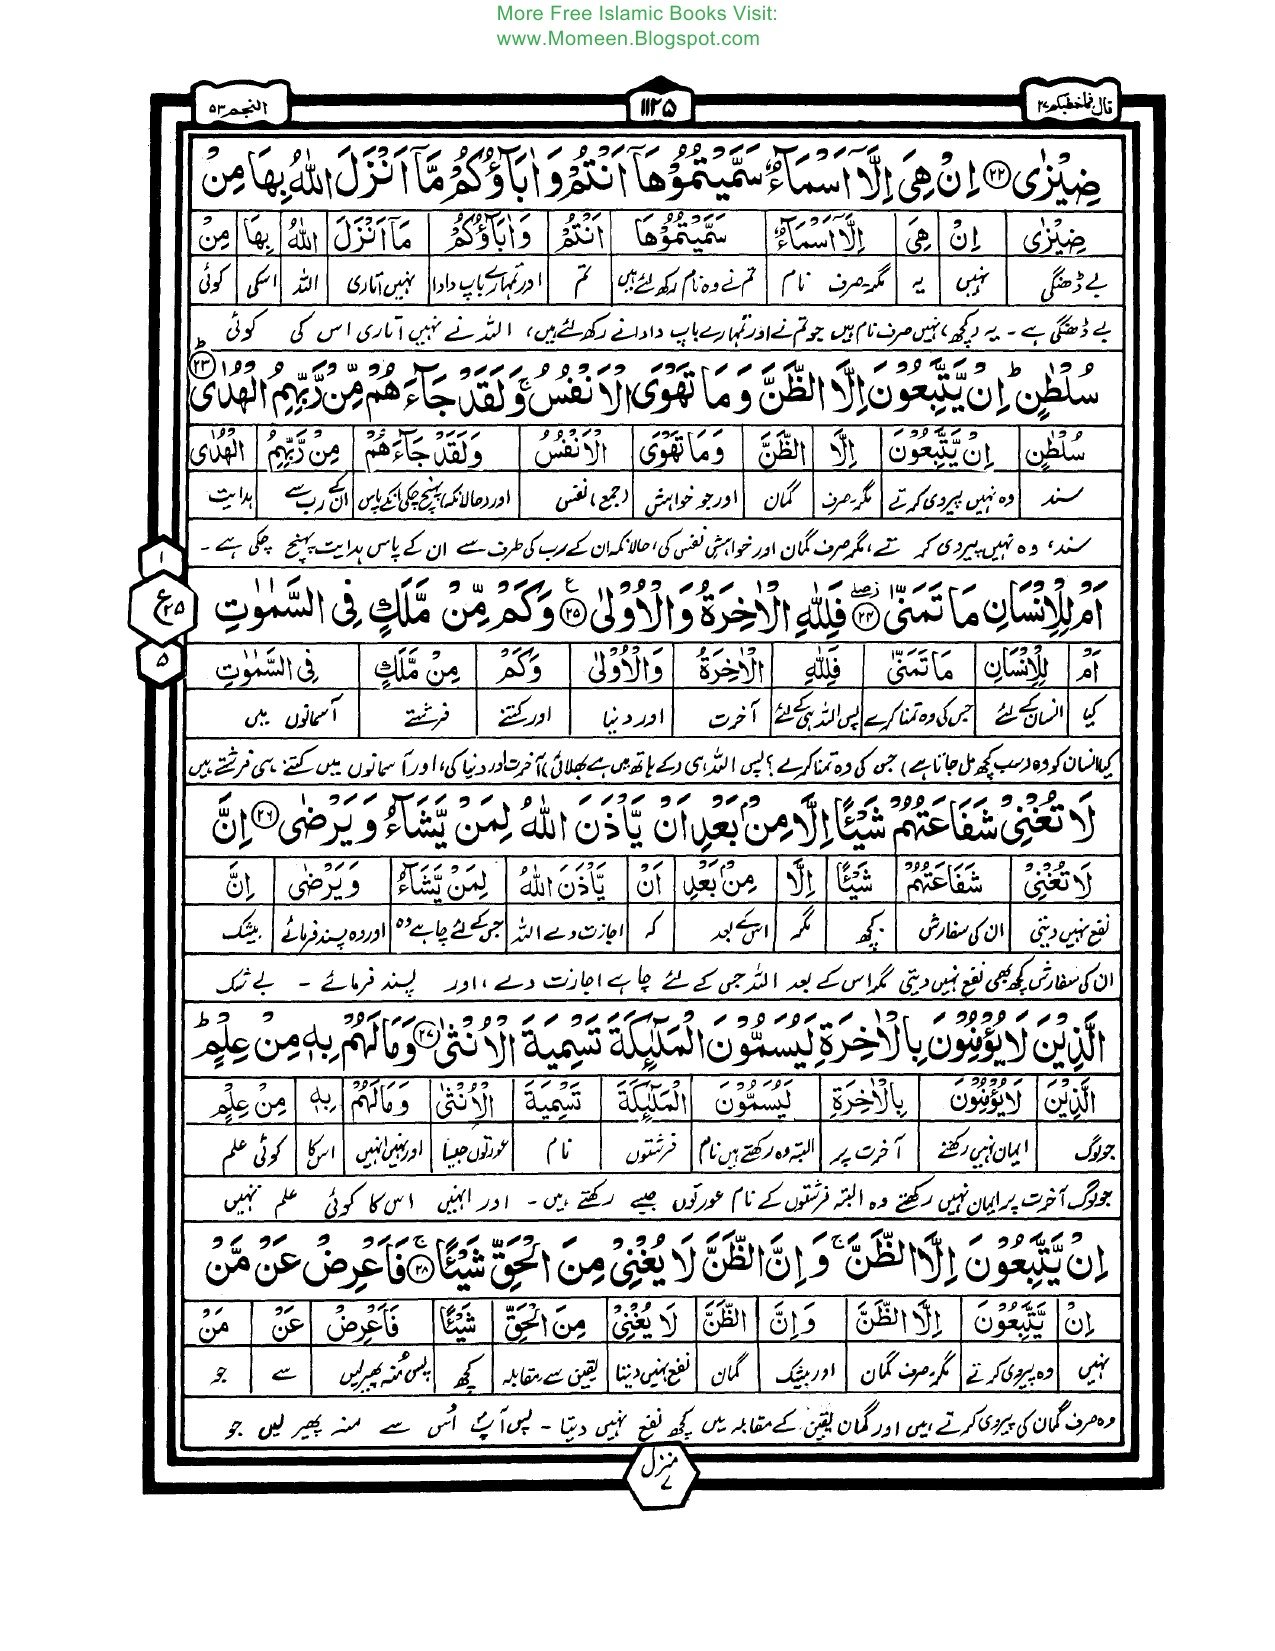 More Free Islamic Books Visit:
www.Momeen.Blogspot.com
قال فما خطبکم ۲۷
۱۱۲۵
النجم ۵۳
ضِيْزٰى ۲۲ اِنْ هِىَ اِلَّاۤ اَسْمَآءٌ سَمَّيْتُمُوْهَاۤ اَنْتُمْ وَاٰبَآؤُكُمْ مَّاۤ اَنْزَلَ اللّٰهُ بِهَا مِنْ
ضِيْزٰى اِنْ هِىَ اِلَّاۤ اَسْمَآءٌ سَمَّيْتُمُوْهَا اَنْتُمْ وَاٰبَآؤُكُمْ مَاۤ اَنْزَلَ اللّٰهُ بِهَا مِنْ
بے ڈھنگی نہیں یہ مگر صرف نام تم نے وہ نام رکھ لئے ہیں تم اور تمہارے باپ دادا نہیں اتاری اللہ اسکی کوئی
بے ڈھنگی ہے ۔ یہ (کچھ) نہیں صرف نام ہیں جو تم نے اور تمہارے باپ دادا نے رکھ لئے ہیں، اللہ نے نہیں اتاری اس کی کوئی
سُلْطٰنٍ ؕ اِنْ يَّتَّبِعُوْنَ اِلَّا الظَّنَّ وَمَا تَهْوَى الْاَنْفُسُ ۚ وَلَقَدْ جَآءَهُمْ مِّنْ رَّبِّهِمُ الْهُدٰى ؕ ۲۳
سُلْطٰنٍ اِنْ يَّتَّبِعُوْنَ اِلَّا الظَّنَّ وَمَا تَهْوَى الْاَنْفُسُ وَلَقَدْ جَآءَهُمْ مِنْ رَّبِّهِمُ الْهُدٰى
سند وہ نہیں پیروی کرتے مگر صرف گمان اور جو خواہش (جمع) نفس اور حالانکہ پہنچ چکی انکے پاس ان کے رب سے ہدایت
سند، وہ نہیں پیروی کرتے، مگر صرف گمان اور خواہشِ نفس کی، حالانکہ ان کے رب کی طرف سے ان کے پاس ہدایت پہنچ چکی ہے ۔
۱
ع ۲۵
۵
اَمْ لِلْاِنْسَانِ مَا تَمَنّٰى ۲۴ فَلِلّٰهِ الْاٰخِرَةُ وَالْاُوْلٰى ۲۵ ع وَكَمْ مِّنْ مَّلَكٍ فِى السَّمٰوٰتِ
اَمْ لِلْاِنْسَانِ مَا تَمَنّٰى فَلِلّٰهِ الْاٰخِرَةُ وَالْاُوْلٰى وَكَمْ مِنْ مَّلَكٍ فِى السَّمٰوٰتِ
کیا انسان کے لئے جس کی وہ تمنا کرے پس اللہ ہی کے لئے آخرت اور دنیا اور کتنے فرشتے آسمانوں میں
کیا انسان کو وہ (سب کچھ مل جاتا ہے) جس کی وہ تمنا کرے؟ پس اللہ ہی (کے ہاتھ میں ہے بھلائی) آخرت اور دنیا کی، اور آسمانوں میں کتنے ہی فرشتے ہیں
لَا تُغْنِىْ شَفَاعَتُهُمْ شَيْئًا اِلَّا مِنْۢ بَعْدِ اَنْ يَّاْذَنَ اللّٰهُ لِمَنْ يَّشَآءُ وَيَرْضٰى ۲۶ اِنَّ
لَا تُغْنِىْ شَفَاعَتُهُمْ شَيْئًا اِلَّا مِنْۢ بَعْدِ اَنْ يَّاْذَنَ اللّٰهُ لِمَنْ يَّشَآءُ وَيَرْضٰى اِنَّ
نفع نہیں دیتی ان کی سفارش کچھ مگر اس کے بعد کہ اجازت دے اللہ جس کے لئے چاہے وہ اور وہ پسند فرمائے بیشک
ان کی سفارش کچھ بھی نفع نہیں دیتی مگر اس کے بعد اللہ جس کے لئے چاہے اجازت دے، اور پسند فرمائے ۔ بے شک
الَّذِيْنَ لَا يُؤْمِنُوْنَ بِالْاٰخِرَةِ لَيُسَمُّوْنَ الْمَلٰٓئِكَةَ تَسْمِيَةَ الْاُنْثٰى ۲۷ وَمَا لَهُمْ بِهٖ مِنْ عِلْمٍ ؕ
الَّذِيْنَ لَا يُؤْمِنُوْنَ بِالْاٰخِرَةِ لَيُسَمُّوْنَ الْمَلٰٓئِكَةَ تَسْمِيَةَ الْاُنْثٰى وَمَا لَهُمْ بِهٖ مِنْ عِلْمٍ
جو لوگ ایمان نہیں رکھتے آخرت پر البتہ وہ رکھتے ہیں نام فرشتوں نام عورتوں جیسا اور نہیں انہیں اس کا کوئی علم
جو لوگ آخرت پر ایمان نہیں رکھتے وہ البتہ فرشتوں کے نام عورتوں جیسے رکھتے ہیں ۔ اور انہیں اس کا کوئی علم نہیں
اِنْ يَّتَّبِعُوْنَ اِلَّا الظَّنَّ ۚ وَاِنَّ الظَّنَّ لَا يُغْنِىْ مِنَ الْحَقِّ شَيْئًا ۚ ۲۸ فَاَعْرِضْ عَنْ مَّنْ
اِنْ يَّتَّبِعُوْنَ اِلَّا الظَّنَّ وَاِنَّ الظَّنَّ لَا يُغْنِىْ مِنَ الْحَقِّ شَيْئًا فَاَعْرِضْ عَنْ مَنْ
نہیں وہ پیروی کرتے مگر صرف گمان اور بیشک گمان نفع نہیں دیتا یقین سے مقابلہ کچھ پس منہ پھیر لیں سے جو
وہ صرف گمان کی پیروی کرتے ہیں اور گمان یقین کے مقابلہ میں کچھ نفع نہیں دیتا ۔ پس آپؐ اُس سے منہ پھیر لیں جو
منزل ۷